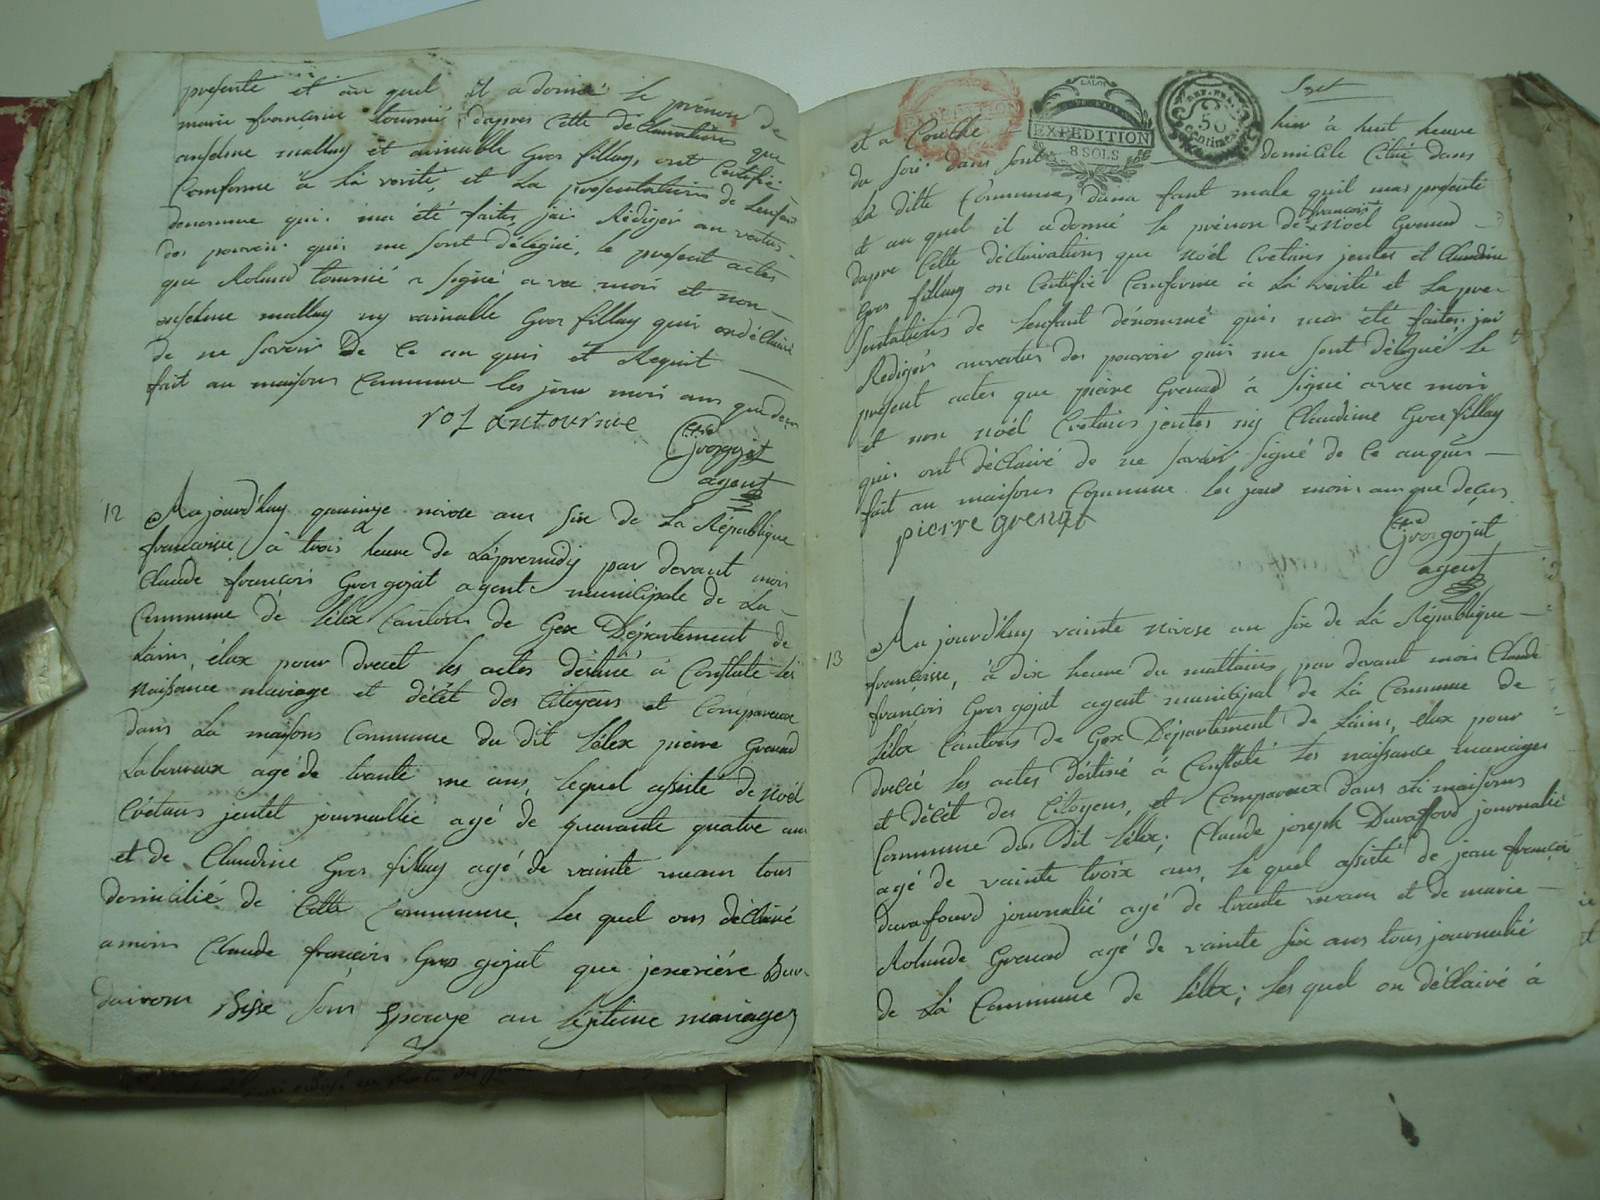 presenté et au quel il a donné le prénom de
marie françoise tournié, dapres Cette déClairations que
anselme mallay et aimable Gros fillay, ont Certifié
Comforme à la verité, et La presentations de Lenfan
denomme qui ma été faites, jai Rédigér au vertus
des pouvoir qui me sont délégué, le present actes
que Roland tournié a signé avec moi et non
anselme mallay ny aimable Gros fillay qui on déClairé
de ne savoir De Ce an quis et Requit
fait au maisons Commune les jour moi ans que deçus
rolantournie
Grosgojat
agent
12 Au jourd'huy quainze nivose ans six de La République
françoise, à trois heure de Lapremidy par devant moi
Claude françois Gros gojat agent municipale de La
Commune de Lélex Cantons de Gex Département de
Lains, élux pour drecet les actes déstiné à Constaté les
Naissance mariage et décét des Citoyens et Compareux
dans La maisons Commune du dit Lélex pierre Grenad
Laboureux agé de trante ans, lequel assisté de Noél
Crétans jentet journallié agé de quarante quatre ans
et de Claudine Gros fillay agé de vainte tous
domicilié de Cette Commune, Les quel ons déClairé
a moi Claude françois Gros gojat que jeneviéve
son Epouze au légitime mariages
Sept
EXPEDITION
8 SOLS
50
Centimes
et a Couche hier à huit heure
du soir dans sont domicile Citué dans
La ditte Commune, dun a fant male quil mas presenté
et au quel il a donné le prénom de françois Noél Grenad
dapre Cette déClairations que Noél Cretans jentes et Claudine
Gros fillay on Certifié Comforme à La vérité et La pre
sentations de Lenfant dénommé qui mas été faites, jai
Redigér au vertus des pouvoir qui me sont délégué Le
présent actes que pierre Grenad à signé avec moi
et non Noél Crétans jentes ny Claudine Gros fillay
qui ont déClairé de ne savoir signé de Ce an quis
fait au maisons Commune les jour moi ans que deçus
pierre grenat
Grosgojat
agent
13 Au jourd'huy vainte Nivose an six de La République
françoise, à dix heure du mattains, par devant moi Claude
françois Gros gojat agent municipal de La Commune de
Lélex Cantons de Gex Département de Lains, élux pour
drecée les actes déstiné à Constaté Les naissance mariages
et décét des Citoyens, et Compareux dans La maisons
Commune du Dit Lélex, Claude joseph Duraffourd journalié
agé de vainte troix ans, Le quel assisté de jean françois
Duraffourd journalié agé de trante ans et de marie
Rolande Grenad agé de vainte six ans tous journalié
de La Commune de Lélex; Les quel on déClairé à